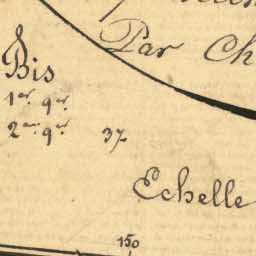 Par Ch
Bis
1er qer
2me qer 37
Echelle
150